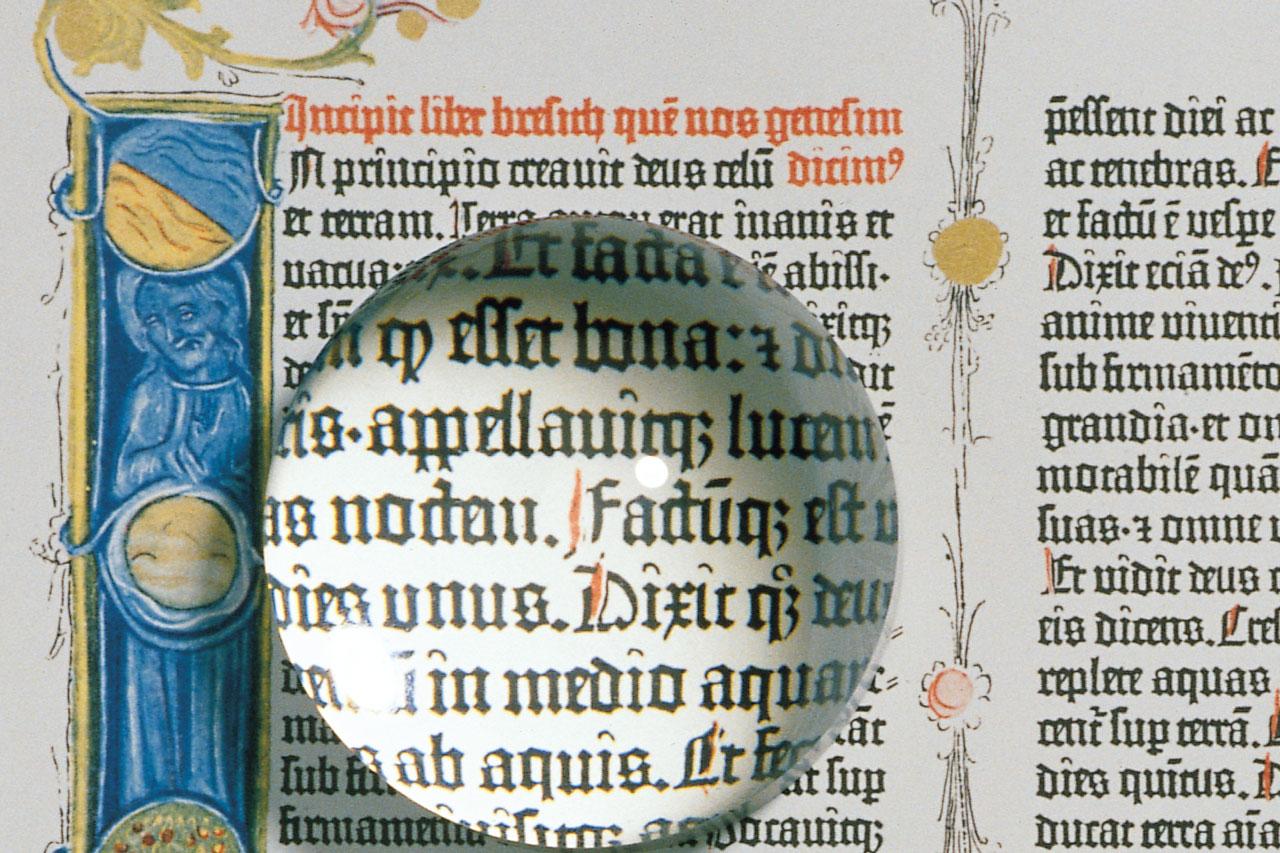 Incipit liber bresith quē nos genesim
N principio creauit deus celū dicimꝰ
et terram. Terra autem erat inanis et
uacua: abissi·
et sp̄
Et facta ē
m ꝙ esset bona: ⁊ di
appellauitqꝫ lucem
as noctem. Factūqꝫ est
dies vnus. Dixit qꝫ deus
in medio aqua
s ab aquis. Et fec
sub fi at sup
firmamentū
p̄essent diei ac
ac tenebras. E
et factū ē vespe
Dixit eciā deꝰ.
anime viuenti
sub firmamēto
grandia·et om
motabilē quā
suas·⁊ omne v
Et vidit deus
eis dicens. Cre
replete aquas
cent᷑ sup terrā.
dies quintus. D
ducat terra aīa